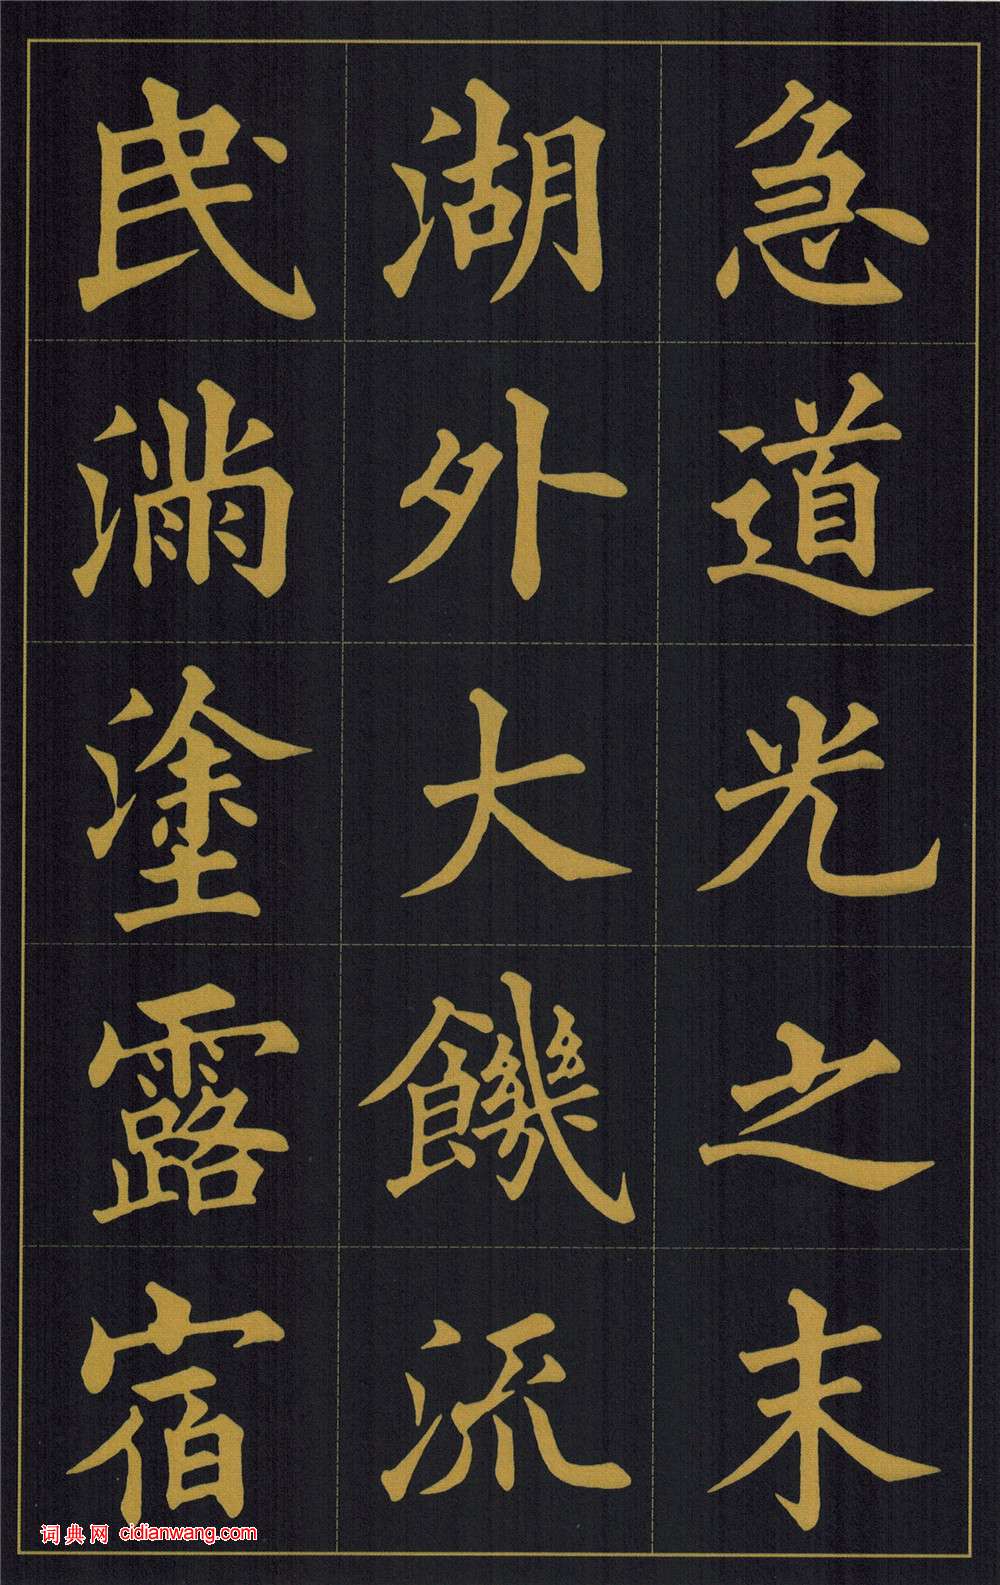 急道光之末
湖外大饑流
民滿塗露宿
词典网 cidianwang.com